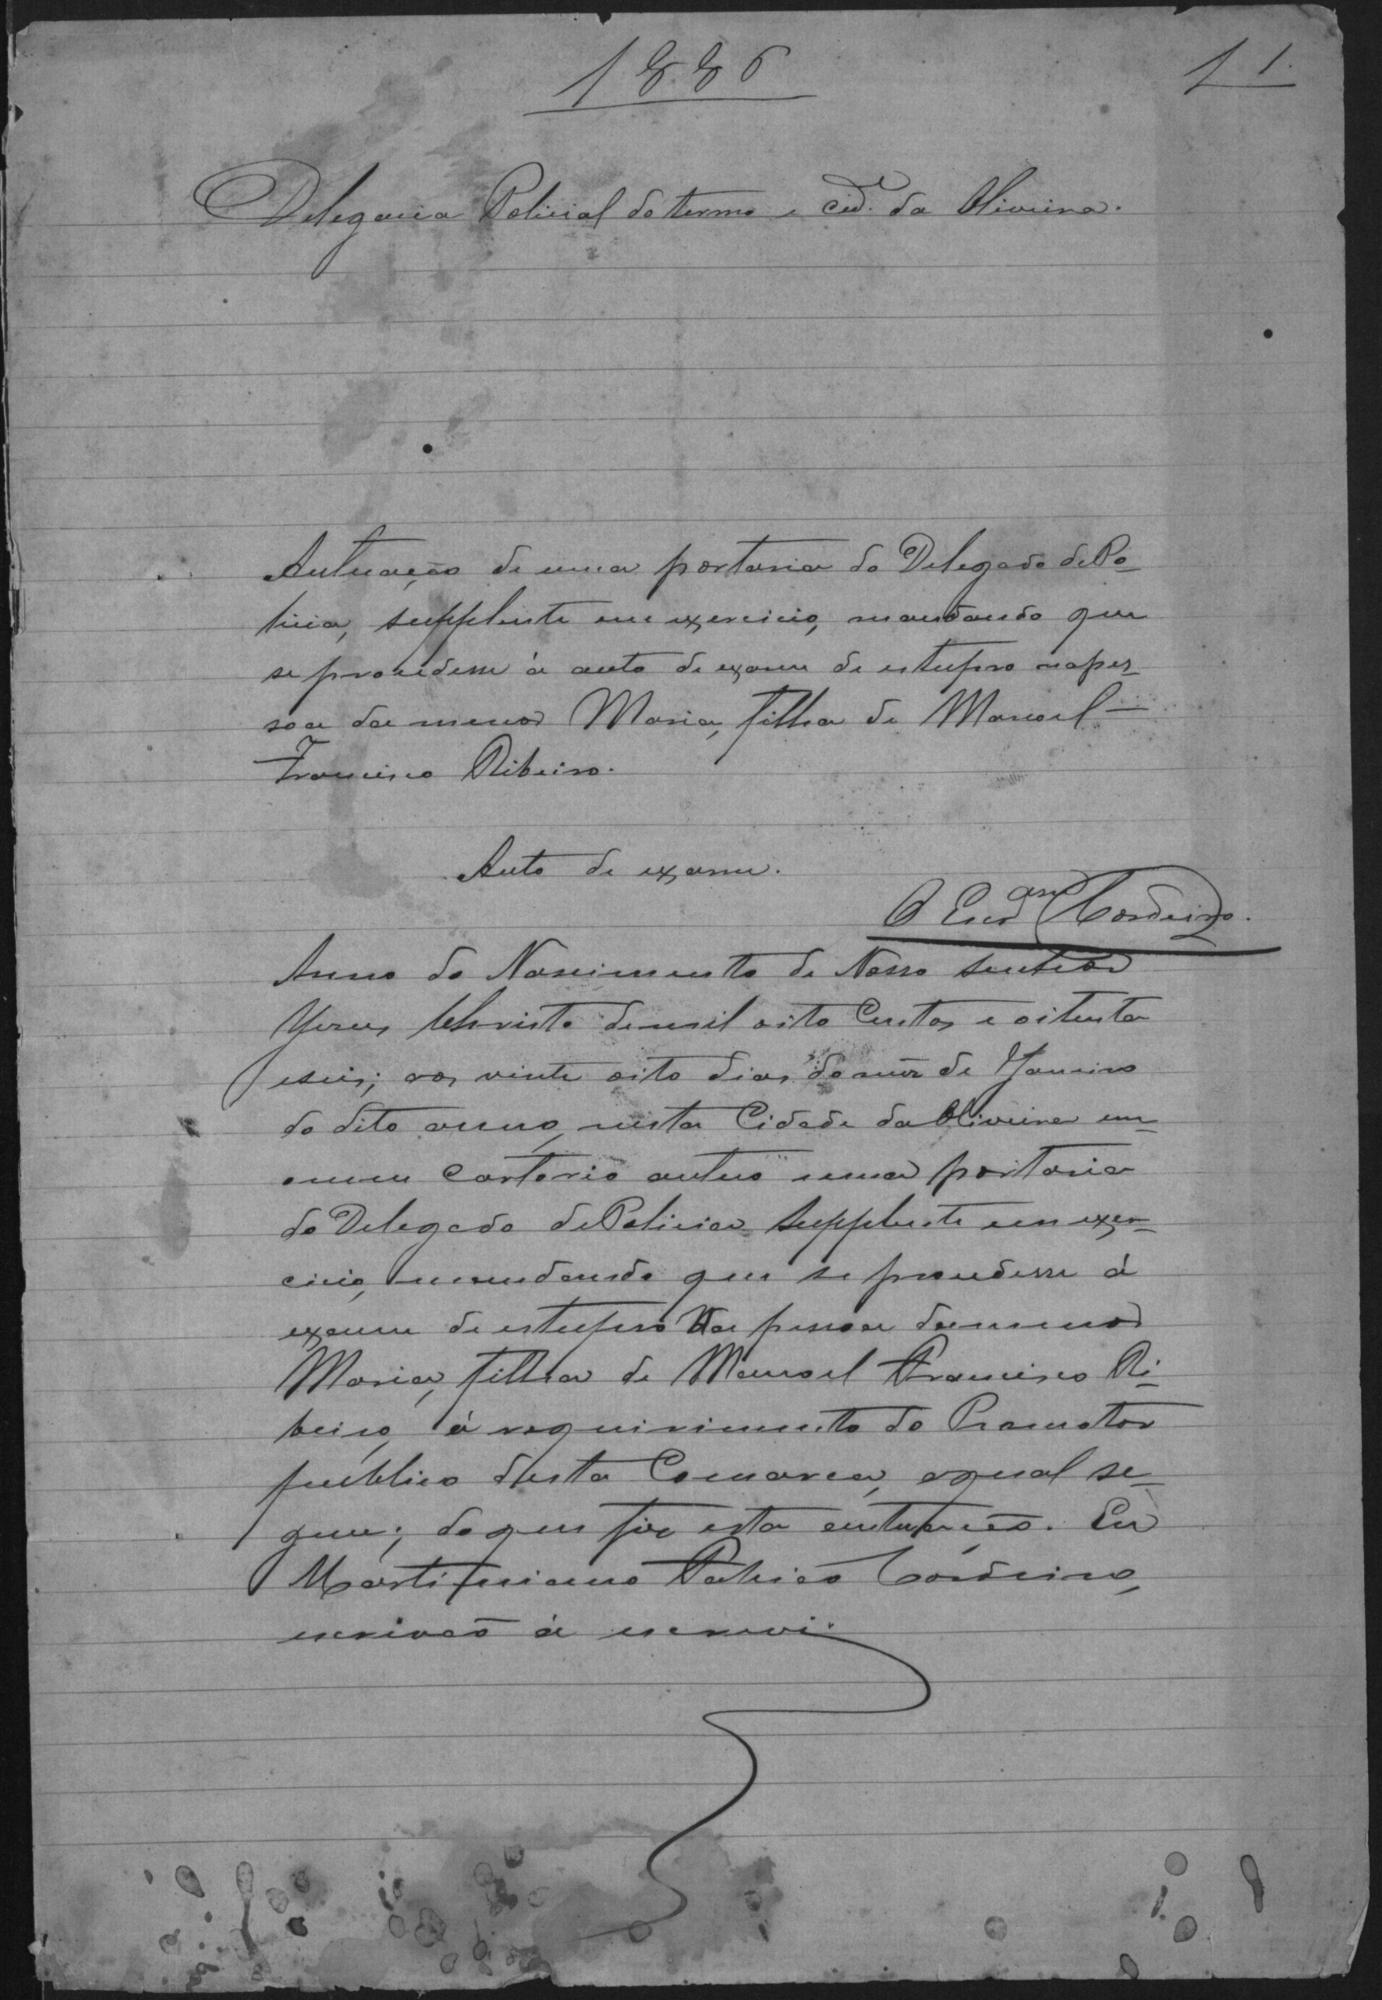 1886
1 1.
Delegacia Policial do termo e cid.e da Oliveira.
Autuação de uma portaria do Delegado de Po-
licia, supplente em exercicio, mandando que
se procedesse á auto de exame de estupro na pes-
soa da menor Maria, filha de Manoel
Francisco Ribeiro.
Auto de exame.
O Escr.am Cordeiro.
Anno do Nascimento de Nosso Senhor
Yesus Christo de mil oito Centos e oitenta
eseis; aos vinte oito dias do mez de Yaneiro
do dito anno, nesta Cidade da Oliveira em
o meu Cartorio autuo uma portaria
do Delegado de Policia Supplente em exer-
cicio, mandando que se procedesse á
exame de estupro Na pessoa da menor
Maria, filha de Manoel Francisco Ri-
beiro, á requirimento do Promotor
publico desta Comarca, aqual se-
gue; do que fiz esta autuação. Eu
Martimiano Patricio Cordeiro,
escrivão á escrevi.